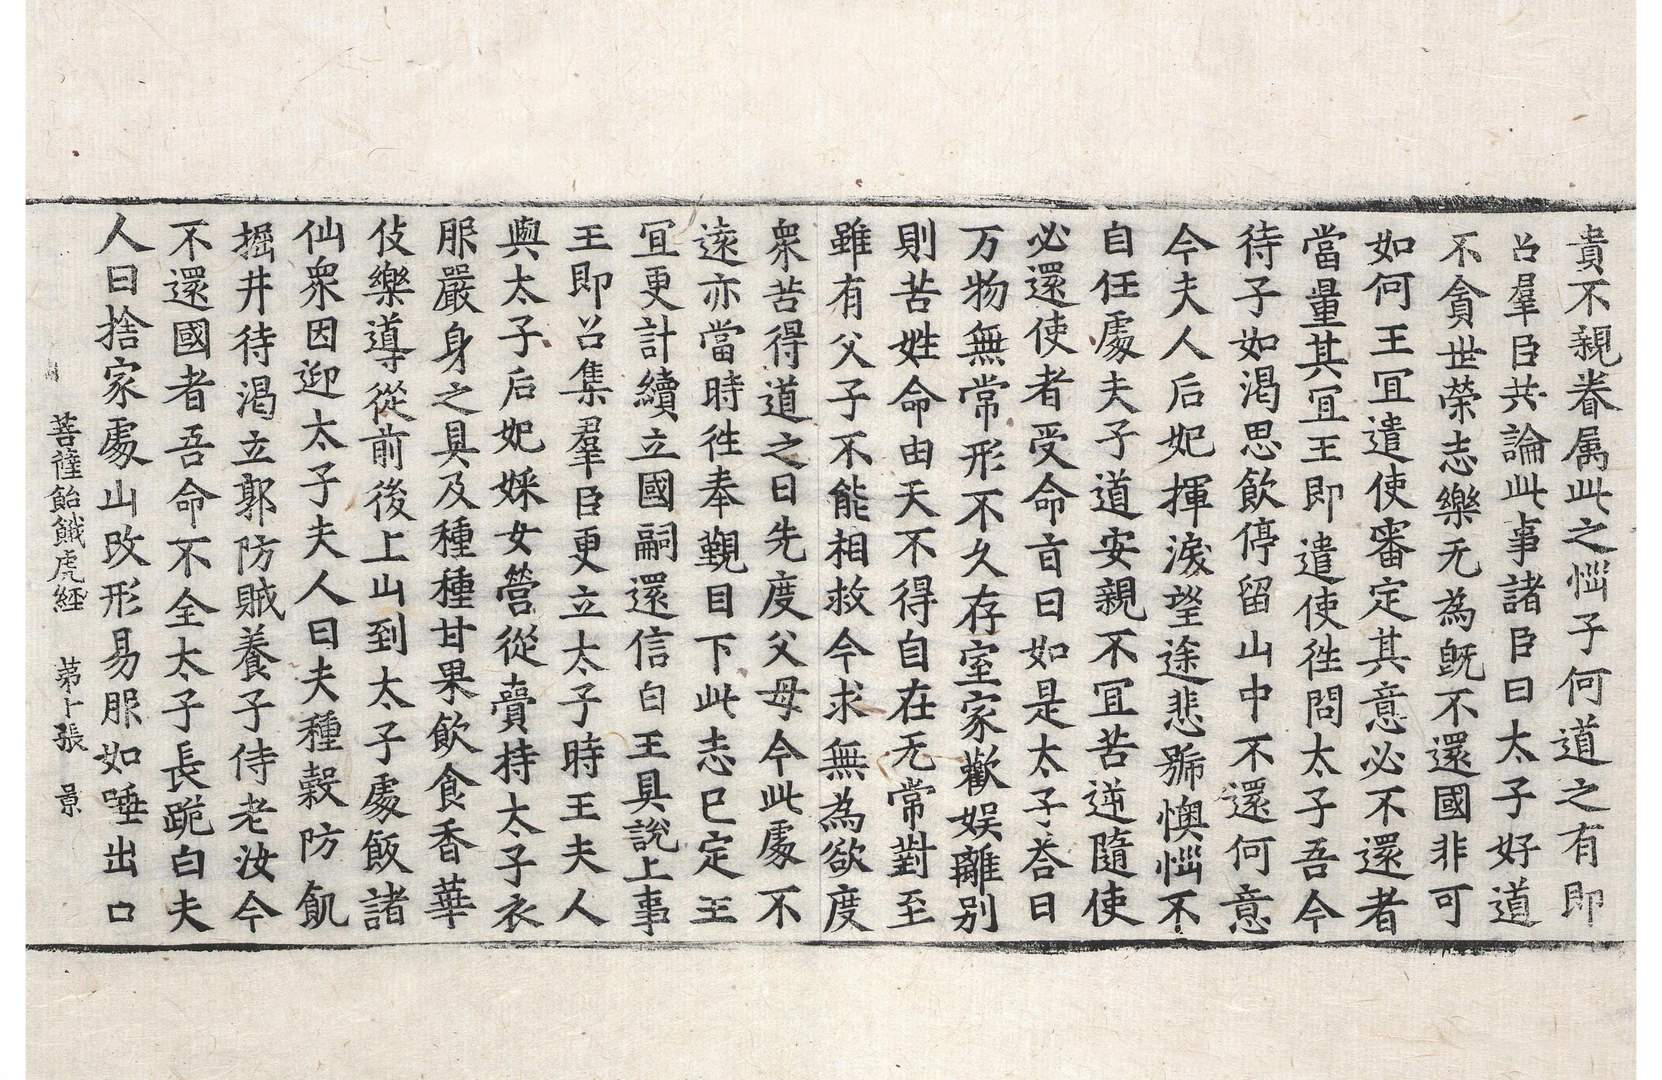 貴不親眷属此之惱子何道之有即
召羣臣共論此事諸臣曰太子好道
不貪世榮志樂无為旣不還國非可
如何王冝遣使審定其意必不還者
當量其冝王即遣使徃問太子吾今
待子如渴思飲停留山中不還何意
今夫人后妃揮淚望途悲號懊惱不
自任處夫子道安親不冝苦逆隨使
必還使者受命言曰如是太子荅曰
万物無常形不久存室家歡娱離別
則苦姓命由天不得自在无常對至
雖有父子不能相救今求無為欲度
衆苦得道之日先度父母今此處不
遠亦當時徃奉覲目下此志已定王
冝更計續立國嗣還信白王具說上事
王即召集羣臣更立太子時王夫人
與太子后妃婇女營從賷持太子衣
服嚴身之具及種種甘果飲食香華
伎樂導從前後上山到太子處飯諸
仙衆因迎太子夫人曰夫種穀防飢
掘井待渴立郭防賊養子侍老汝今
不還國者吾命不全太子長跪白夫
人曰捨家處山改形易服如唾出口
菩薩飴餓虎經 苐十張 景